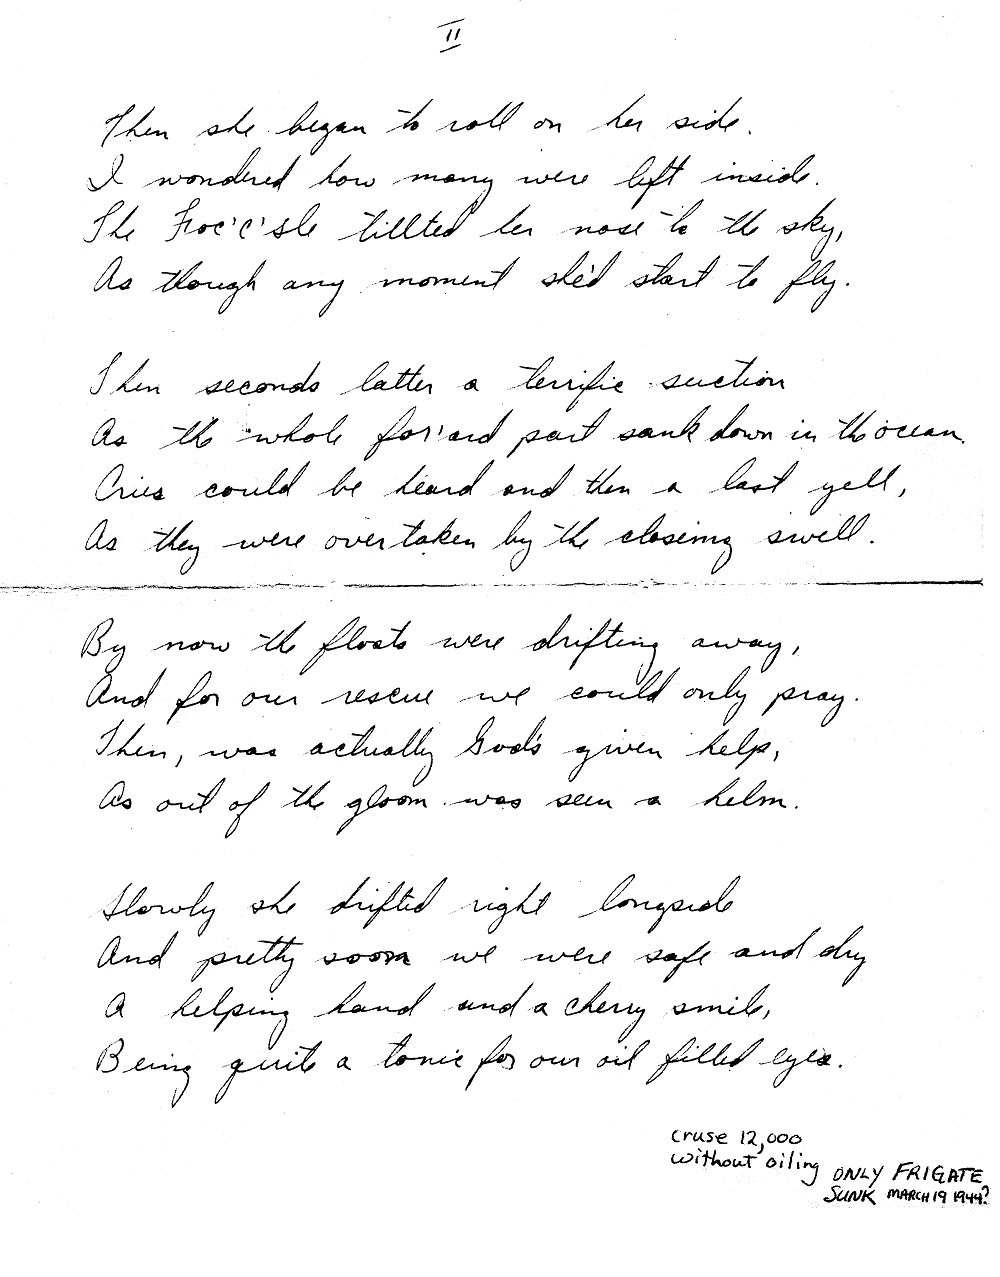 II
Then she began to roll on her side.
I wondered how many were left inside.
The Foc'c'sle tillted her nose to the sky,
As though any moment she'd start to fly.
Then seconds latter a terrific suction
As the whole for'ard part sank down in the ocean.
Cries could be heard and then a last yell,
As they were overtaken by the closeing swell.
By now the floats were drifting away,
And for our rescue we could only pray.
Then, was actually God's given help,
As out of the gloom was seen a helm.
Slowly she drifted right longside
And pretty soon we were safe and dry
A helping hand and a cherry smile,
Being quite a tonic for our oil filled eyes.
cruse 12,000
without oiling
ONLY FRIGATE
SUNK MARCH 19 1944?